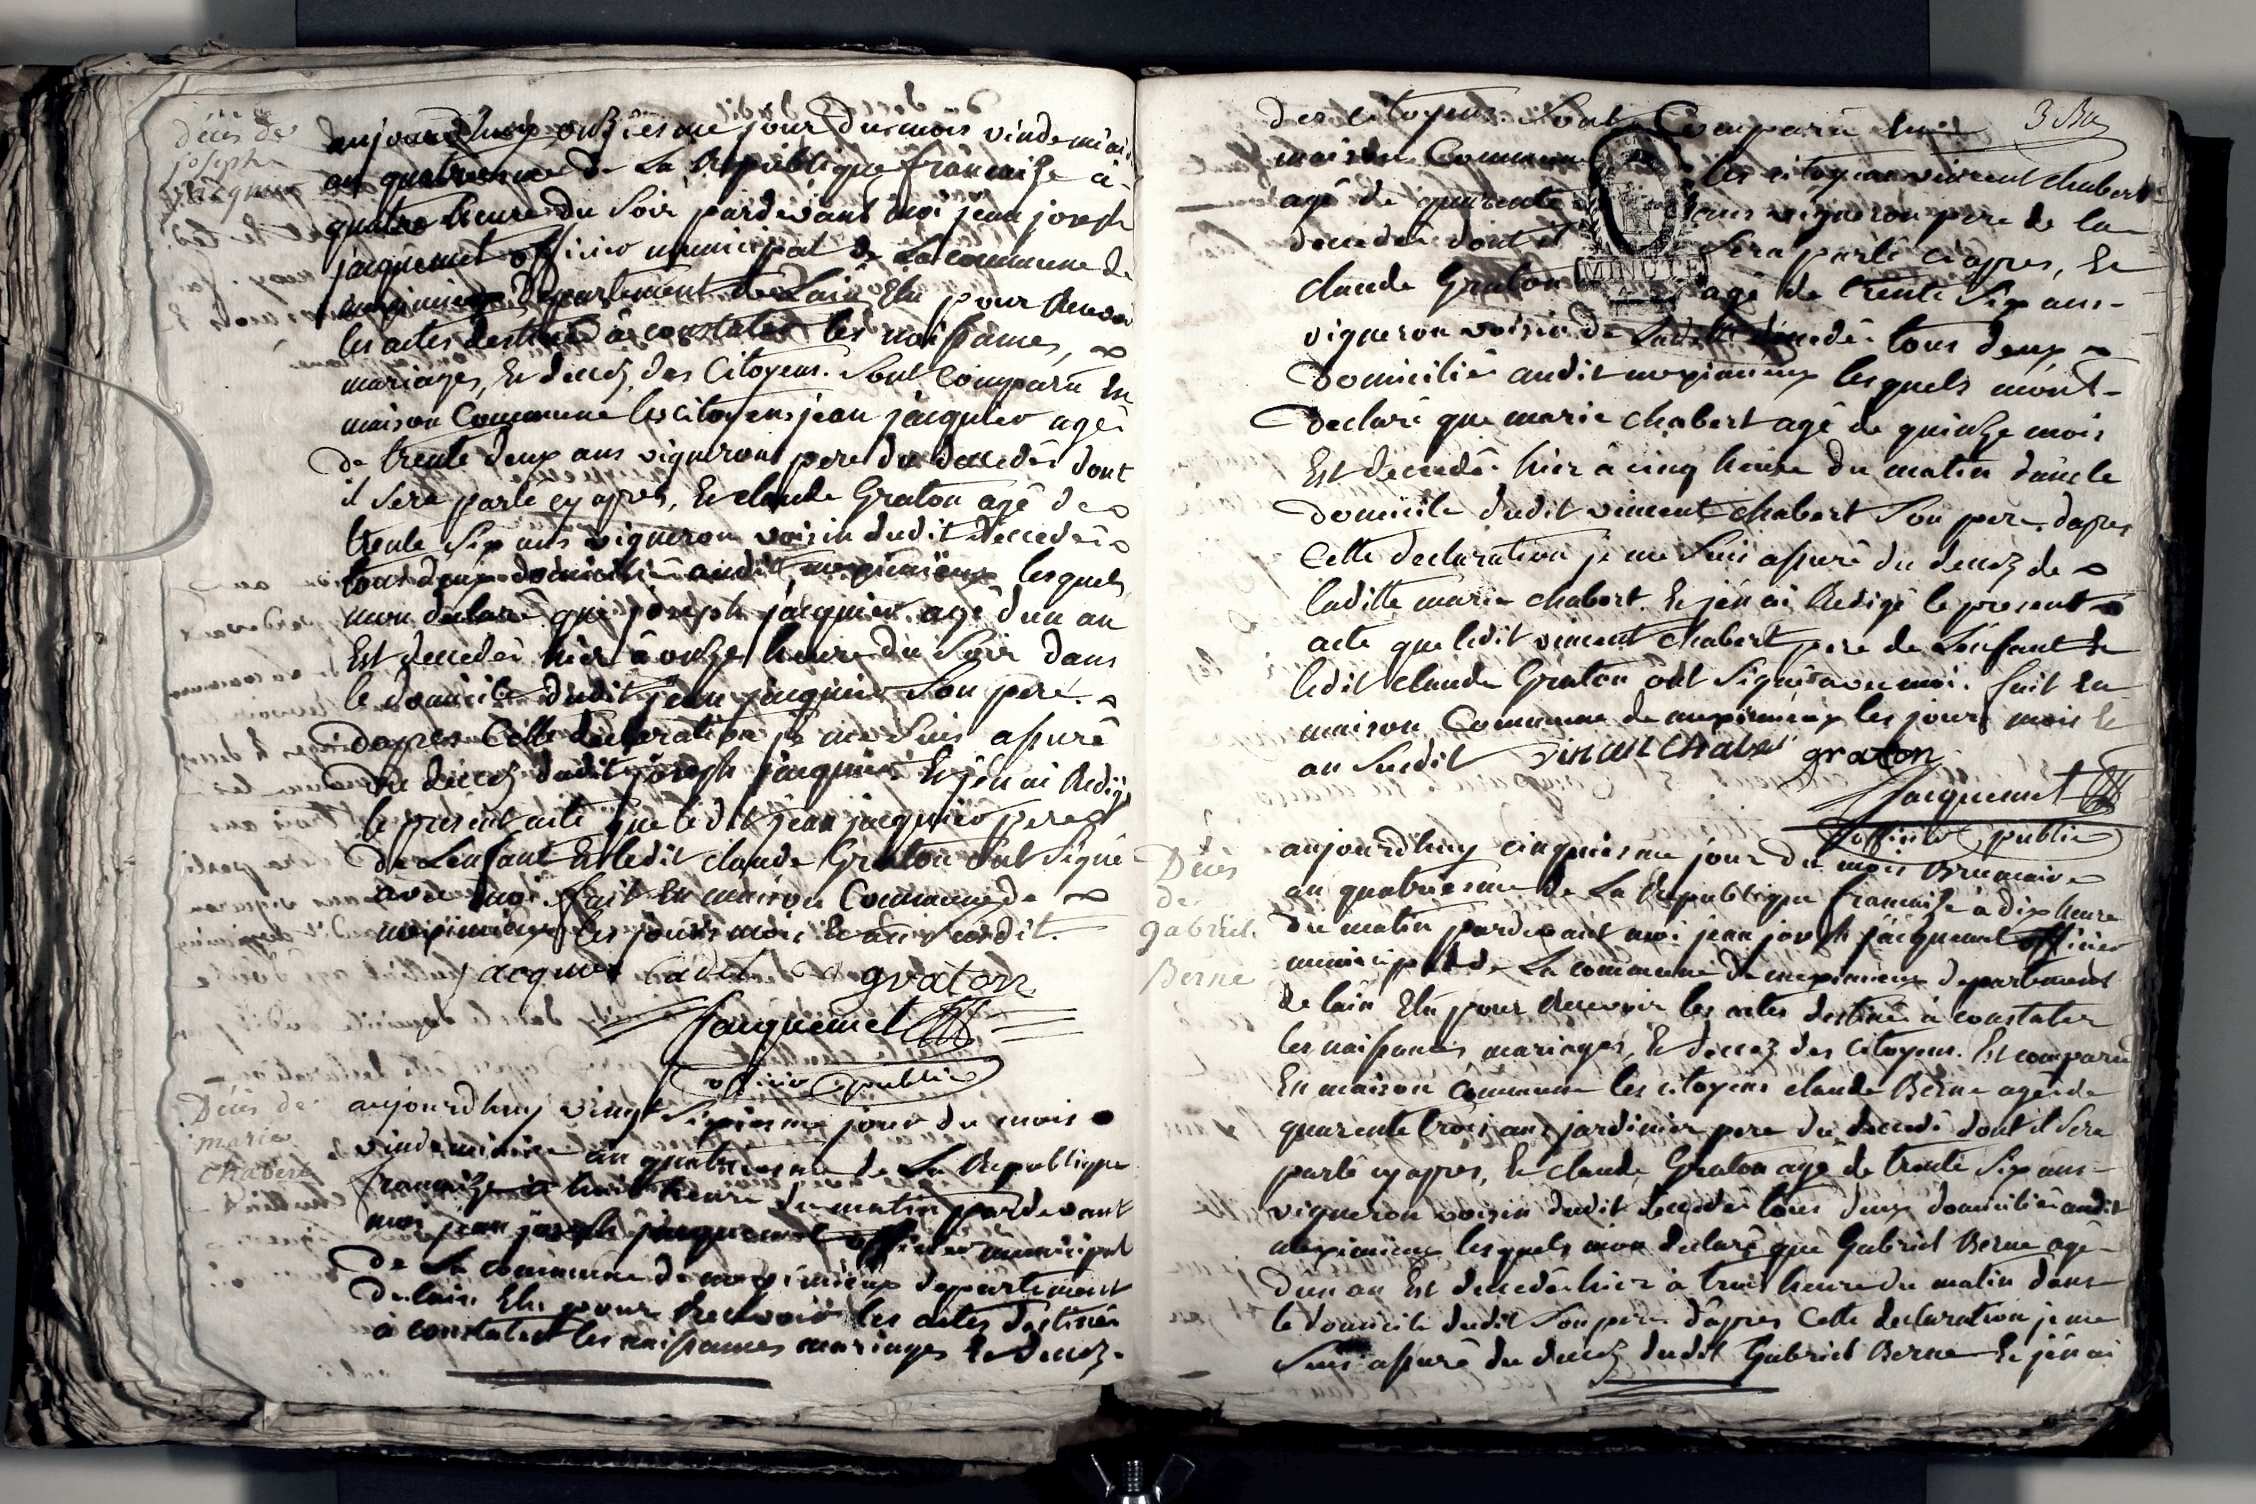 Décès de
joseph
jacquier
aujourdhuy onzieme jour du mois vindemiair
an quatriesme de La Republique francaise a
quatre heure du Soir pardevant moi jean joseph
jacquemet officier municipal de La commune de
meximieux departement de Lain Elu pour Recevoir
les actes destiné a constater les naissances,
mariages, Et decez des Citoyens. Sont Comparu En
maison Commune les citoyens jean jacquier agé
de trente deux ans vigneron pere du decedé dont
il sera parlé cy apres, Et claude Graton agé de
trente Six ans vigneron voisin dudit decedé
tous deux domicilié audit meximieux lesquels
mon declaré que joseph jacquier agé dun an
Est decedé hier a onze heure du Soir dans
le domicile dudit jean jacquier Son pere.
dapres Cette declaration je me Suis assuré
du decez dudit joseph jacquier Et jén ai Redigé
le present acte que ledit jean jacquier pere
de Lenfant Et ledit claude Graton ont Signé
avec moi. fait En maison Commune de
meximieux les jours mois Et an Susdit.
jacquier graton
Jacquemet
officier public
Décès de
marie
chabert
aujourdhuy vingt Sixiesme jour du mois
vindemiaire an quatriesme de La Republique
francaise a huit heure du matin pardevant
moi jean joseph jacquemet officier municipal
de La commune de meximieux departement
de lain Elu pour Recevoir les actes destinés
a constater les naissances mariages Et decez
des citoyens. Sont Comparu En
maison Commune les citoyens vincent chabert
agé de quarente ans vigneron pere de la
decedée dont il Sera parlé ci apres, Et
claude Graton agé de trente Six ans
MINUTE
vigneron voisin de Laditte decedé tous deux
domicilié audit meximieux lesquels mont
declaré que marie chabert agé de quinze mois
Est decedé hier à cinq heure du matin dans le
domicile dudit vincent chabert Son pere. dapres
Cette declaration je me Suis assuré du decez de
laditte marie chabert. Et jén ai Redigé le present
acte que ledit vincent chabert pere de Lenfant Et
ledit claude Graton ont Signés avec moi. fait En
maison Commune de meximieux les jours mois Et
an Susdit vincent chaber graton
Jacquemet
officier public
Décès
de
gabriel
Berne
aujourdhuy cinquiesme jour du mois Brumaire
an quatriesme de La Republique francaise à dix heure
du matin pardevant moi jean joseph jacquemet officier
municipal de La commune de meximieux departement
de lain Elu pour Recevoir les actes destiné à constater
les naissances mariages, Et decez des Citoyens. Est comparu
En maison commune les citoyens claude Berne agé de
quarente trois ans jardinier pere du decedé dont il Sera
parlé cy apres, Et claude Graton agé de trente Six ans
vigneron voisin dudit decedé tous deux domicilié audit
meximieux lesquels mon declaré que Gabriel Berne agé
dun an Est decedé hier à trois heure du matin dans
le domicile dudit Son pere. dapres Cette declaration je me
Suis assuré du decez dudit Gabriel Berne Et jén ai